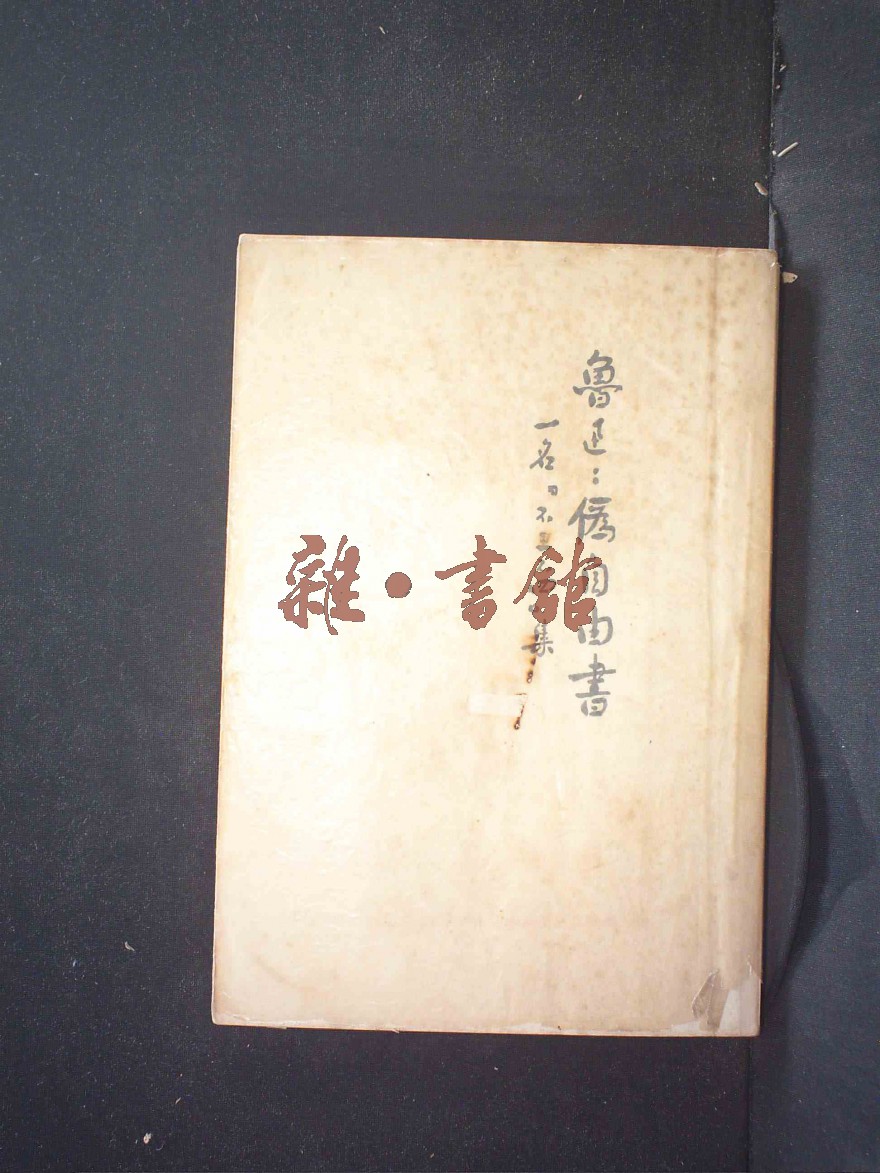 魯迅：偽自由書
一名「不三集」
雜•書館